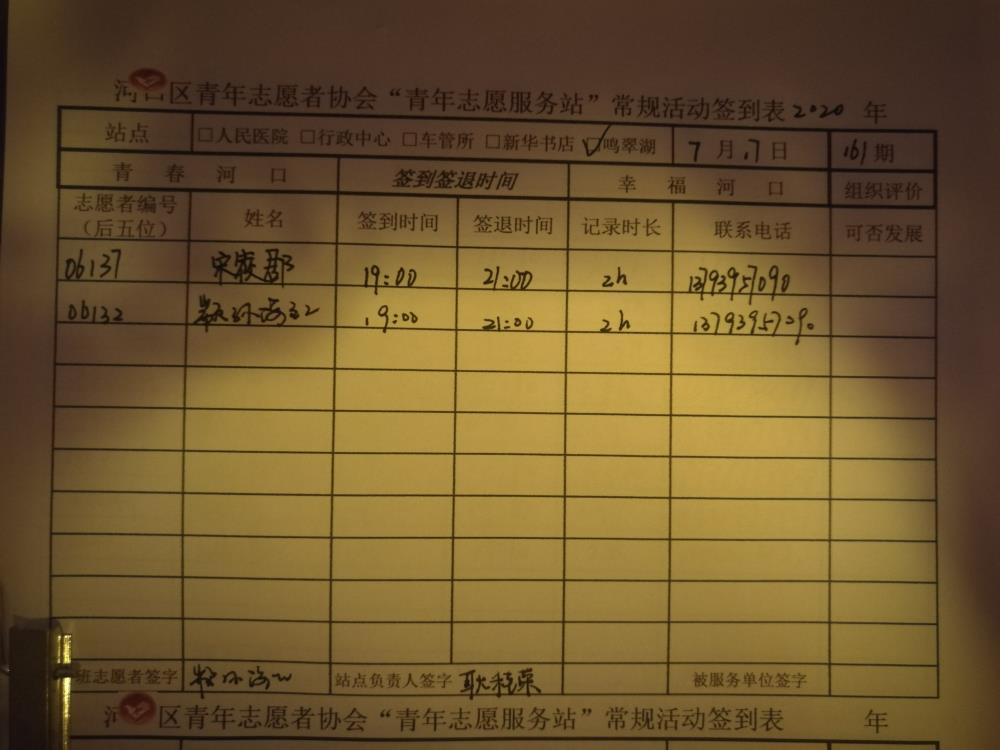 河口区青年志愿者协会“青年志愿服务站”常规活动签到表2020 年
站点 □人民医院 □行政中心 □车管所 □新华书店 ☑鸣翠湖 7 月 17 日 161期
青 春 河 口 签到签退时间 幸 福 河 口 组织评价
志愿者编号（后五位） 姓名 签到时间 签退时间 记录时长 联系电话 可否发展
06137 19:00 21:00 2h 13793957090
06132 19:00 21:00 2h 13793957090
班志愿者签字 站点负责人签字 被服务单位签字
河 区青年志愿者协会“青年志愿服务站”常规活动签到表 年